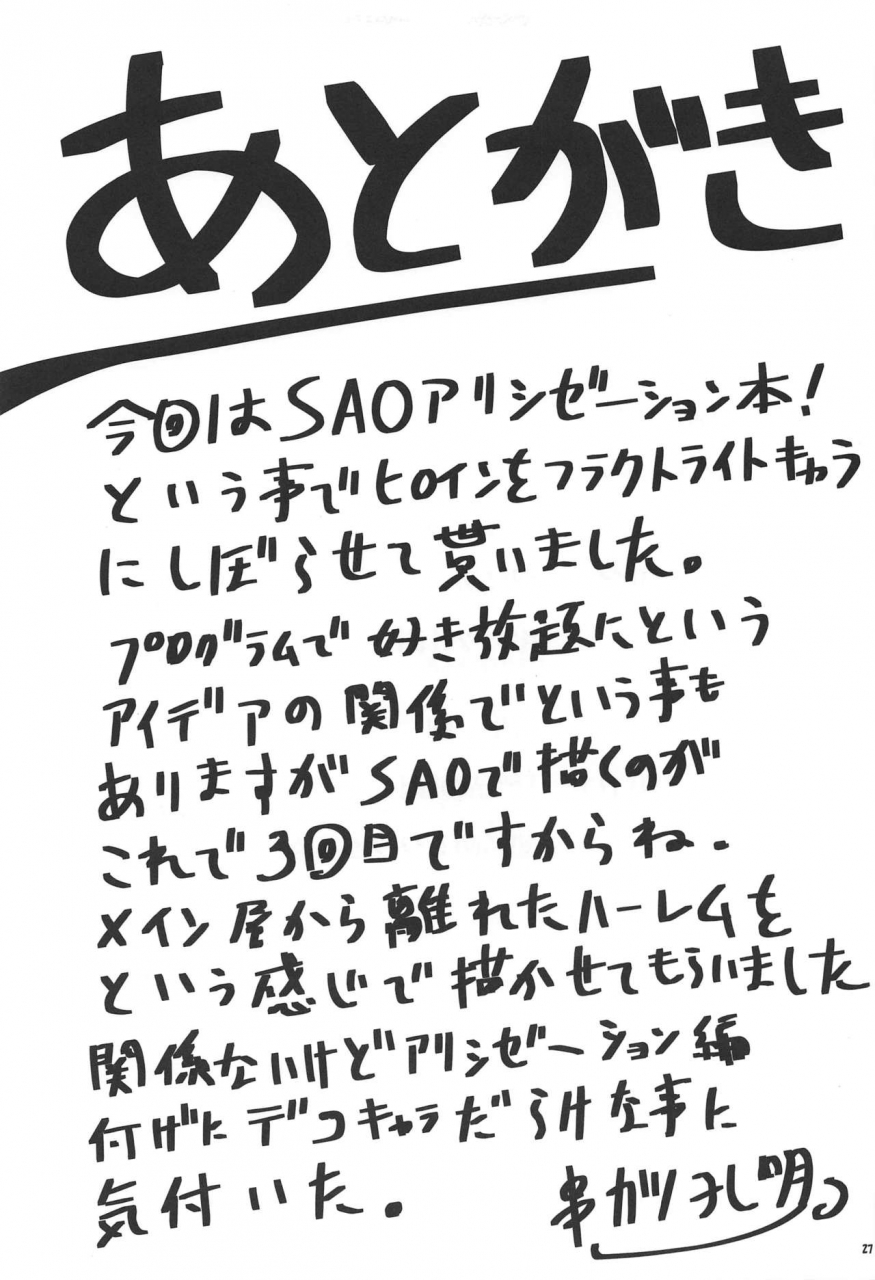 あとがき
今回はSAOアリシゼーション本!
という事でヒロインをフラクトライトキャラ
にしぼらせて貰いました。
プログラムで好き放題にという
アイデアの関係でという事も
ありますがSAOで描くのが
これで3回目ですからね.
メイン屋から離れたハーレムを
という感じで描かせてもらいました
関係ないけどアリシゼーション編
デコキャラだらけな事に
気付いた。
串カツ
27